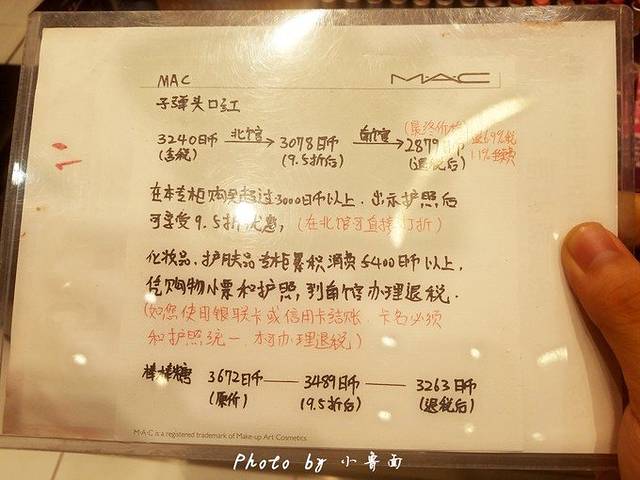 MAC
M·A·C
子弹头口红
(最终价格)
3240日币 北馆 3078日币 南馆 2879日币
(含税) (9.5折后) (退税后)
在本专柜购买超过3000日币以上，出示护照后
可享受9.5折优惠，(在北馆可直接打折)
化妆品、护肤品专柜累积消费5400日币以上，
凭购物小票和护照，到南馆办理退税．
(如您使用银联卡或信用卡结账，卡名必须
和护照统一，才可办理退税)
棒棒糖 3672日币 — 3489日币 — 3263日币
(原价) (9.5折后) (退税后)
M·A·C is a registered trademark of Make-up Art Cosmetics.
Photo by 小青面